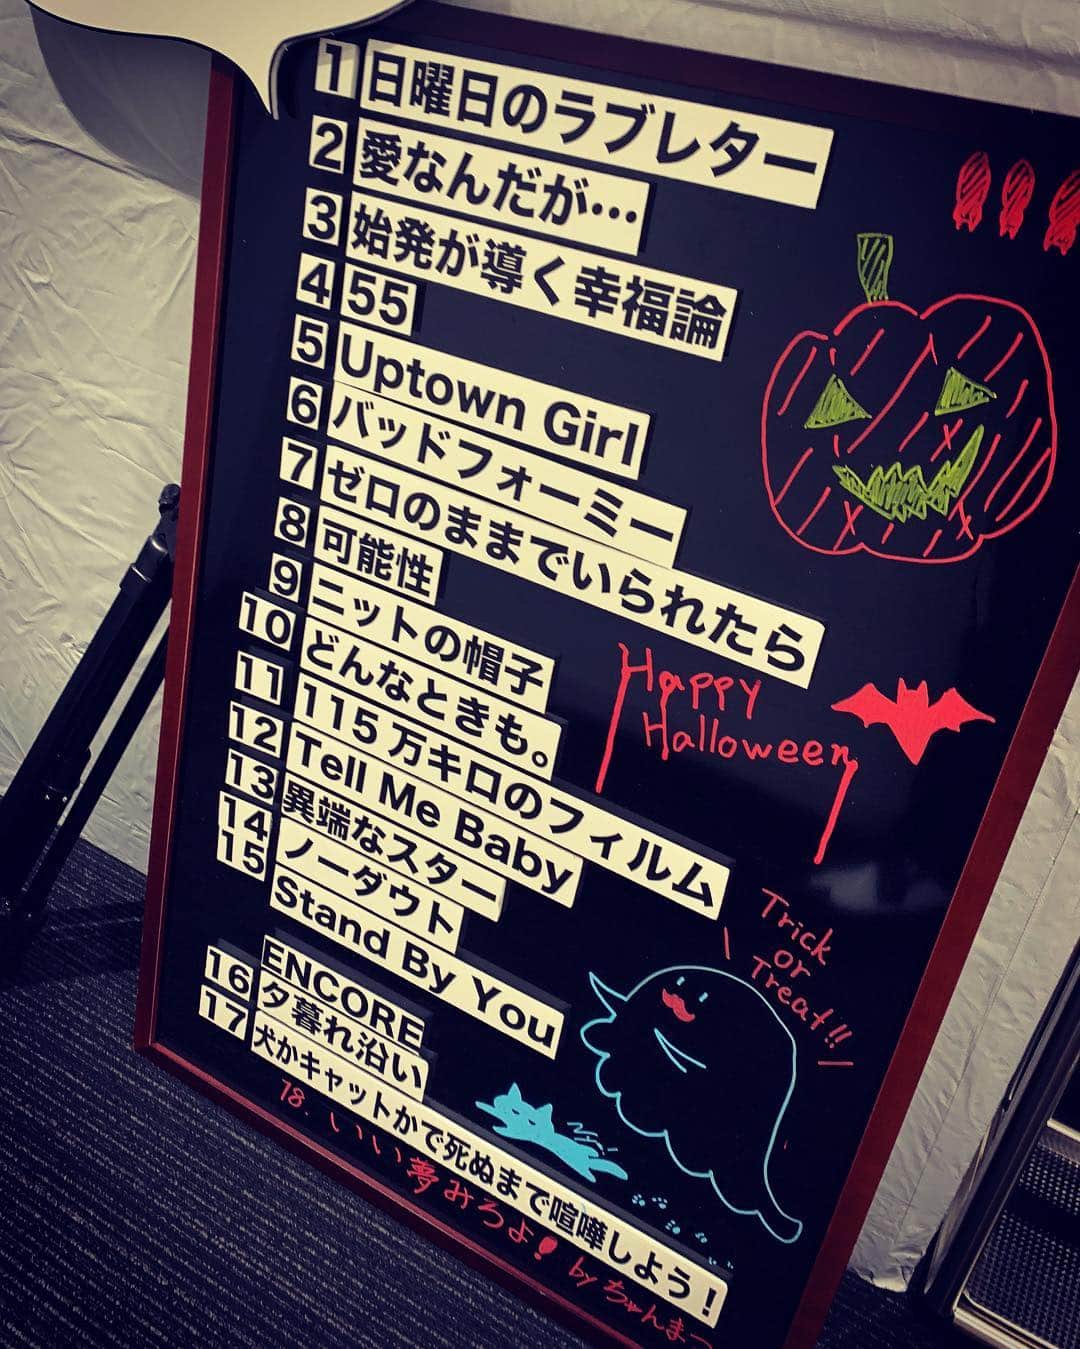 1 日曜日のラブレター
2 愛なんだが…
3 始発が導く幸福論
4 55
5 Uptown Girl
6 バッドフォーミー
7 ゼロのままでいられたら
8 可能性
9 ニットの帽子
10 どんなときも。
11 115万キロのフィルム
12 Tell Me Baby
13 異端なスター
14 ノーダウト
15 Stand By You
ENCORE
16 夕暮れ沿い
17 犬かキャットかで死ぬまで喧嘩しよう！
18. いい夢みろよ! by ちゃんまつ
Happy
Halloween
Trick
or
Treat!!